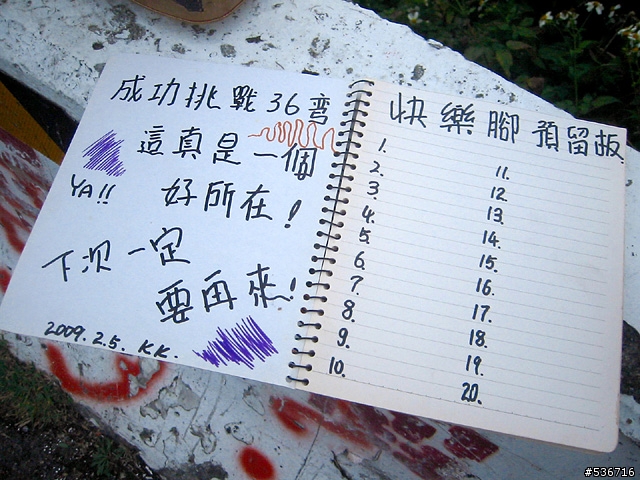 成功挑戰36弯
這真是一個
YA!! 好所在!
下次一定
要再來!
2009.2.5. KK.
快樂腳預留板
1.
2.
3.
4.
5.
6.
7.
8.
9.
10.
11.
12.
13.
14.
15.
16.
17.
18.
19.
20.
#536716